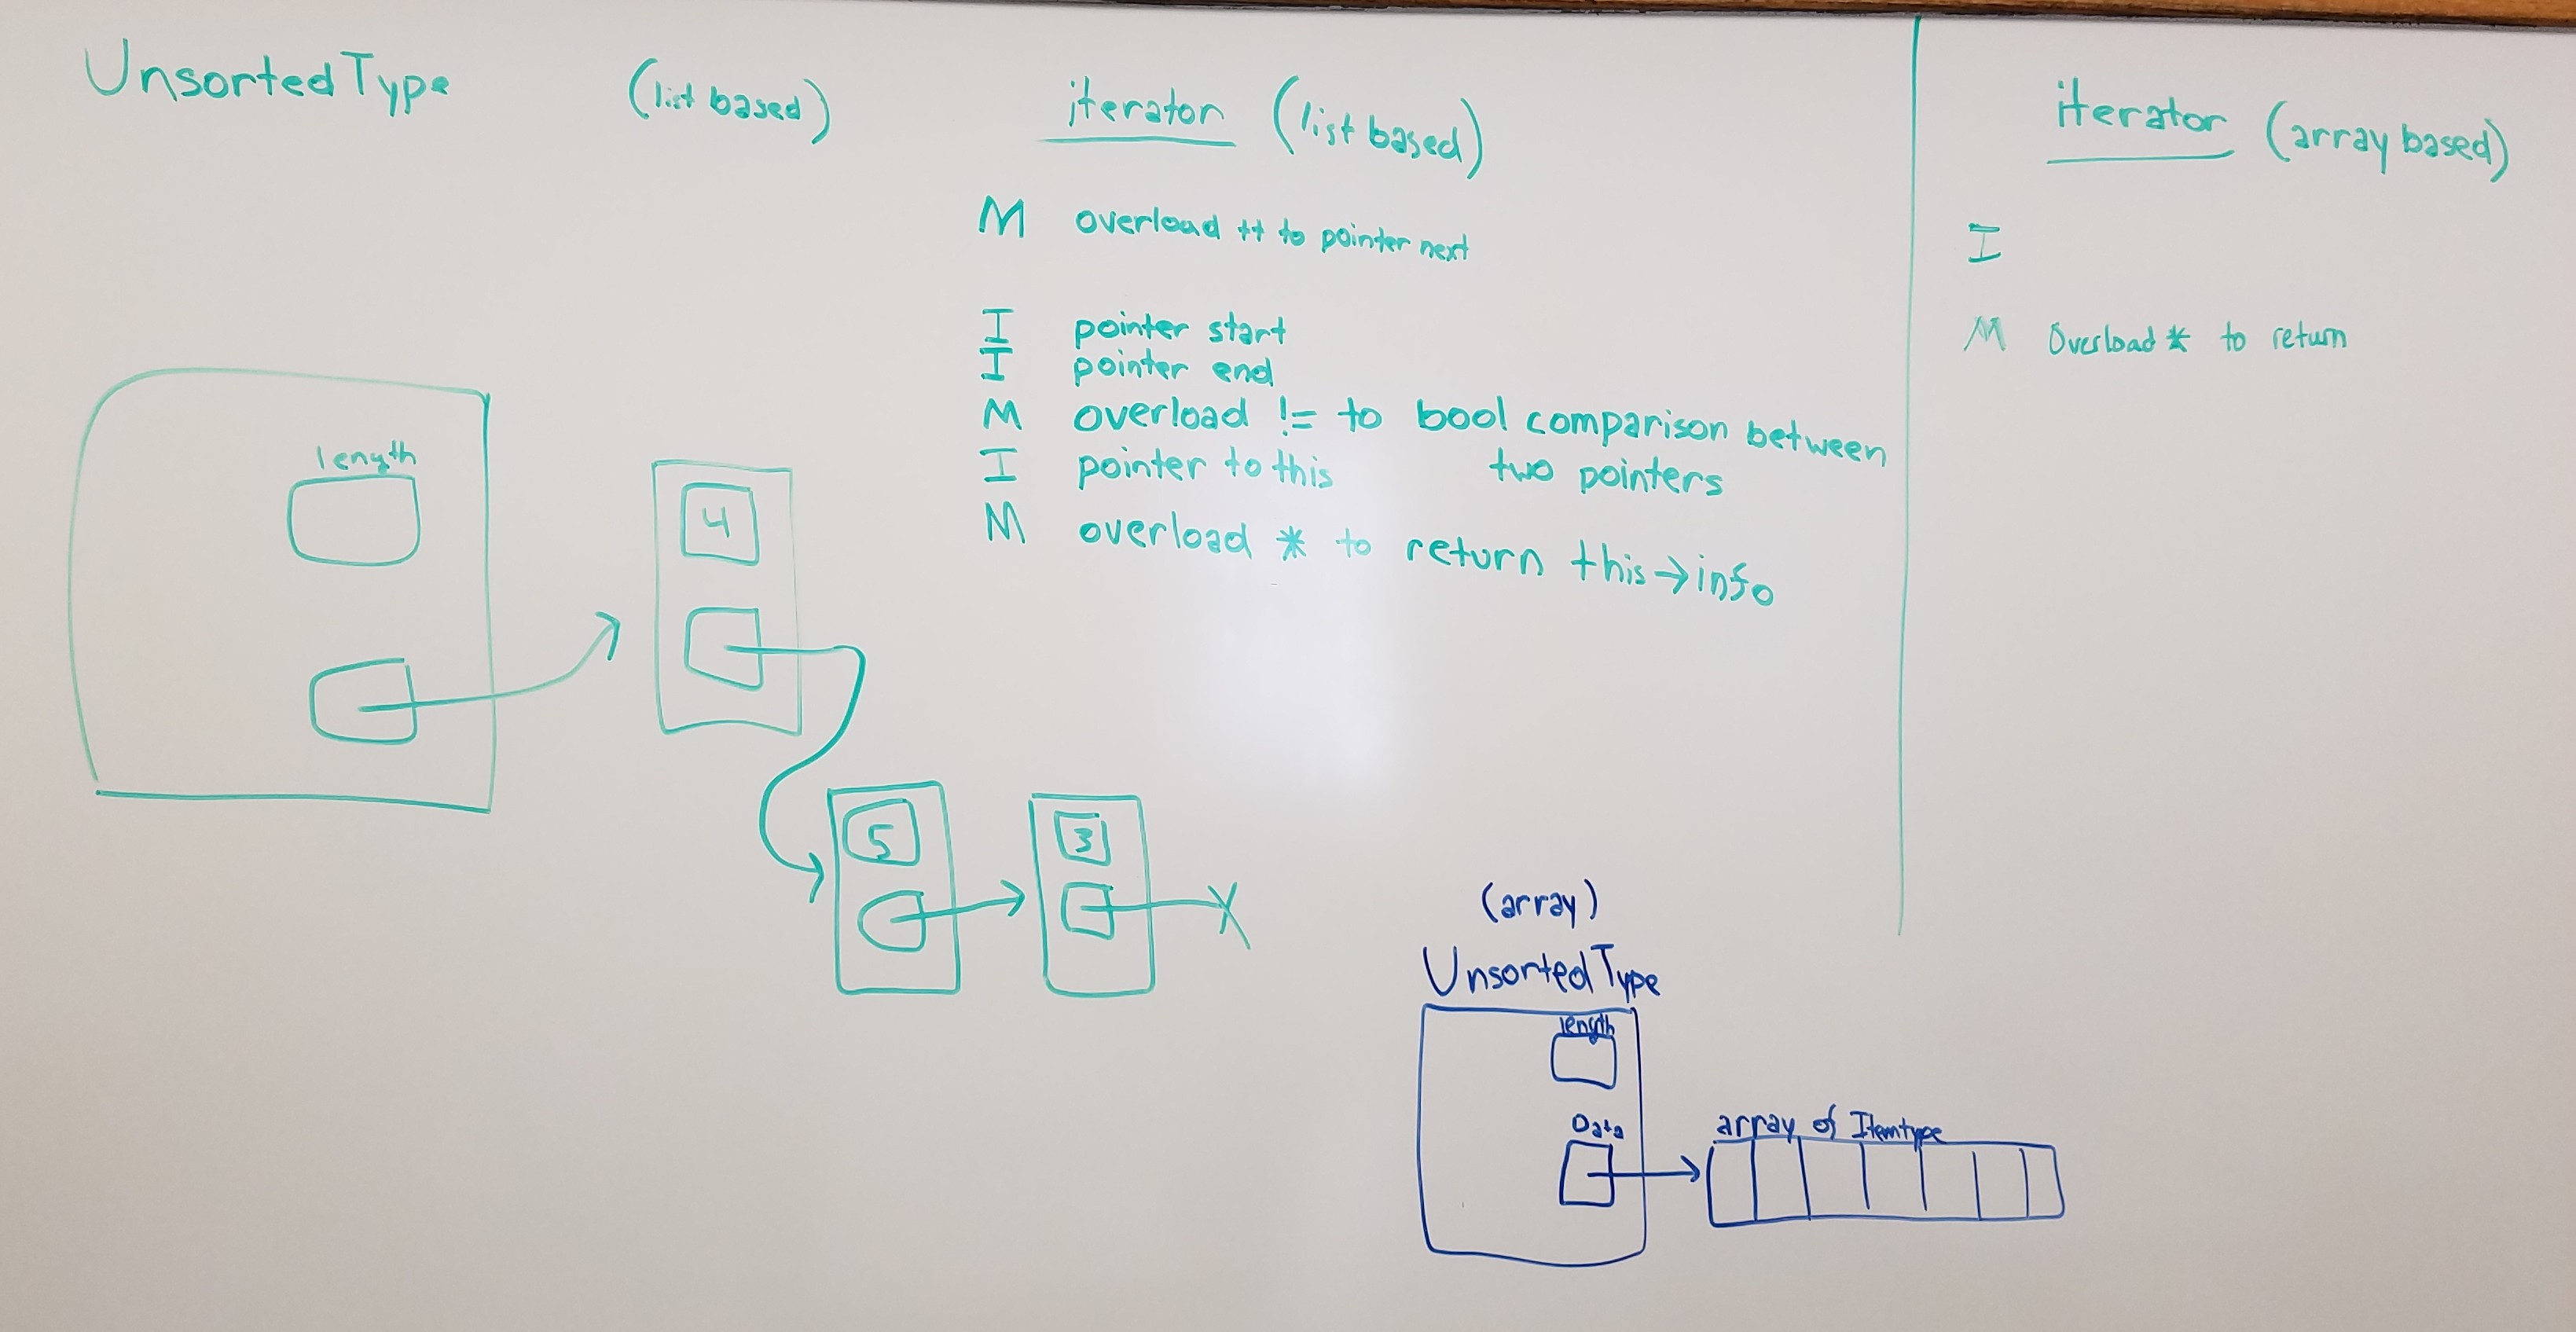 UnsortedType (list based)
length
4
5
3
iterator (list based)
M overload ++ to pointer next
I pointer start
I pointer end
M overload != to bool comparison between
two pointers
I pointer to this
M overload * to return this→info
iterator (array based)
I
M Overload * to return
(array)
UnsortedType
length
Data
array of Itemtype